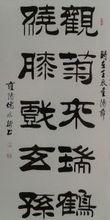 觀菊來瑞鶴
繞膝戲玄孫